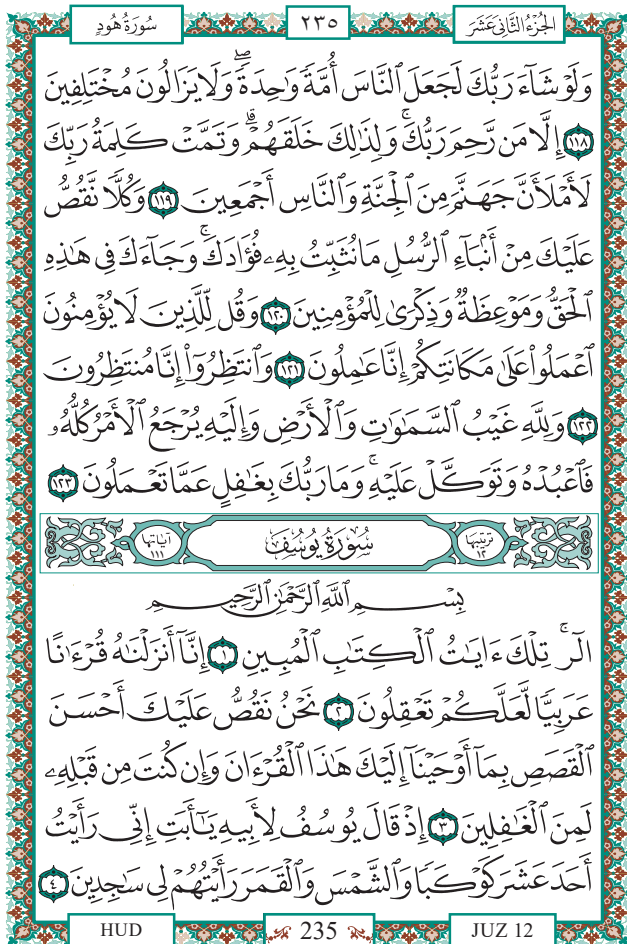 سُورَةُ هُودٍ ٢٣٥ الجُزْءُ الثَّانِي عَشَرَ
وَلَوْ شَآءَ رَبُّكَ لَجَعَلَ ٱلنَّاسَ أُمَّةً وَٰحِدَةً ۖ وَلَا يَزَالُونَ مُخْتَلِفِينَ
١١٨ إِلَّا مَن رَّحِمَ رَبُّكَ ۚ وَلِذَٰلِكَ خَلَقَهُمْ ۗ وَتَمَّتْ كَلِمَةُ رَبِّكَ
لَأَمْلَأَنَّ جَهَنَّمَ مِنَ ٱلْجِنَّةِ وَٱلنَّاسِ أَجْمَعِينَ ١١٩ وَكُلًّا نَّقُصُّ
عَلَيْكَ مِنْ أَنۢبَآءِ ٱلرُّسُلِ مَا نُثَبِّتُ بِهِۦ فُؤَادَكَ ۚ وَجَآءَكَ فِى هَٰذِهِ
ٱلْحَقُّ وَمَوْعِظَةٌ وَذِكْرَىٰ لِلْمُؤْمِنِينَ ١٢٠ وَقُل لِّلَّذِينَ لَا يُؤْمِنُونَ
ٱعْمَلُوا۟ عَلَىٰ مَكَانَتِكُمْ إِنَّا عَٰمِلُونَ ١٢١ وَٱنتَظِرُوٓا۟ إِنَّا مُنتَظِرُونَ
١٢٢ وَلِلَّهِ غَيْبُ ٱلسَّمَٰوَٰتِ وَٱلْأَرْضِ وَإِلَيْهِ يُرْجَعُ ٱلْأَمْرُ كُلُّهُۥ
فَٱعْبُدْهُ وَتَوَكَّلْ عَلَيْهِ ۚ وَمَا رَبُّكَ بِغَٰفِلٍ عَمَّا تَعْمَلُونَ ١٢٣
ترتيبها ١٢ سُورَةُ يُوسُفَ آياتها ١١١
بِسْمِ ٱللَّهِ ٱلرَّحْمَٰنِ ٱلرَّحِيمِ
الٓر ۚ تِلْكَ ءَايَٰتُ ٱلْكِتَٰبِ ٱلْمُبِينِ ١ إِنَّآ أَنزَلْنَٰهُ قُرْءَٰنًا
عَرَبِيًّا لَّعَلَّكُمْ تَعْقِلُونَ ٢ نَحْنُ نَقُصُّ عَلَيْكَ أَحْسَنَ
ٱلْقَصَصِ بِمَآ أَوْحَيْنَآ إِلَيْكَ هَٰذَا ٱلْقُرْءَانَ وَإِن كُنتَ مِن قَبْلِهِۦ
لَمِنَ ٱلْغَٰفِلِينَ ٣ إِذْ قَالَ يُوسُفُ لِأَبِيهِ يَٰٓأَبَتِ إِنِّى رَأَيْتُ
أَحَدَ عَشَرَ كَوْكَبًا وَٱلشَّمْسَ وَٱلْقَمَرَ رَأَيْتُهُمْ لِى سَٰجِدِينَ ٤
HUD 235 JUZ 12